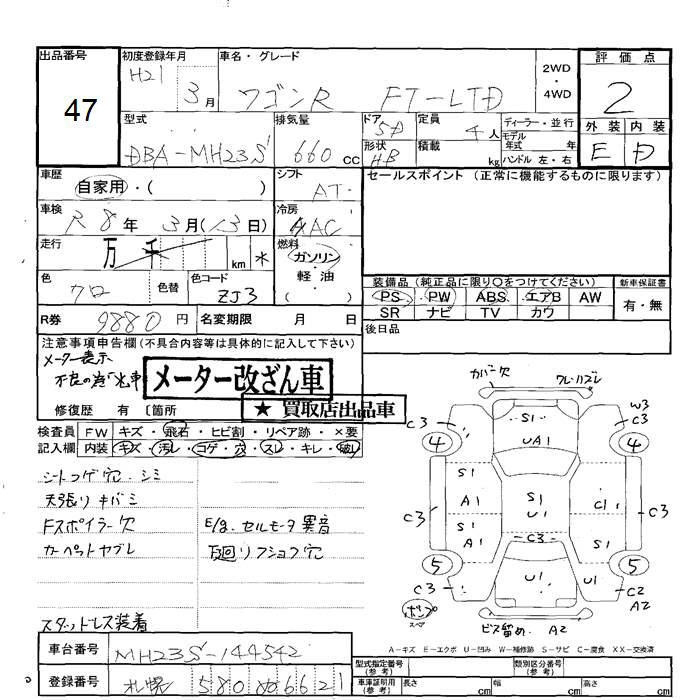 出品番号 初度登録年月 車名・グレード 2WD 評価点
47 H21 3月 ワゴンR FT-LTD ・4WD 2
型式 排気量 ドア 5D 定員 4人 ディーラー・並行 外装 内装
DBA-MH23S 660cc 形状 H.B 積載 kg モデル年式 年 E D
ハンドル 左・右
車歴 シフト セールスポイント(正常に機能するものに限ります)
自家用・( ) AT
車検 冷房
R8年 3月(13日) AAC
走行 万 千 km 燃料
ガソリン・軽油 ( )
色 色替 色コード 装備品(純正品に限り○をつけてください) 新車保証書
クロ ZJ3 PS PW ABS エアB AW 有・無
SR ナビ TV カワ
R券 9880円 名変期限 月 日 後日品
注意事項申告欄(不具合内容等は具体的に記入して下さい)
メーター表示
メーター改ざん車
修復歴 有 〔箇所
★ 買取店出品車
検査員 FW キズ・飛石・ヒビ割・リペア跡・×要
記入欄 内装 キズ・汚レ・コゲ・穴・スレ・キレ・破レ
シートコゲ穴・シミ
天張りキバミ
Fスポイラー欠 E/g.セルモータ異音
カーペットヤブレ 下廻リフショク穴
スタットレス装着
車台番号 MH23S-144542
登録番号 札幌 580 ぬ 6621
カバー欠 フレ・ハズレ
C3 S1 W3 C3
4 UA1 4
S1 S1 C1
A1 U1
C3 S1 C3 S1 C3
A1
5 U1 U1 5
C3 C2
A2
ビス留め A2
A-キズ E-エクボ U-凹み W-補修跡 S-サビ C-腐食 XX-交換済
型式指定番号(参考) 類別区分番号(参考)
車庫証明用(参考) 長さ cm 幅 cm 高さ cm